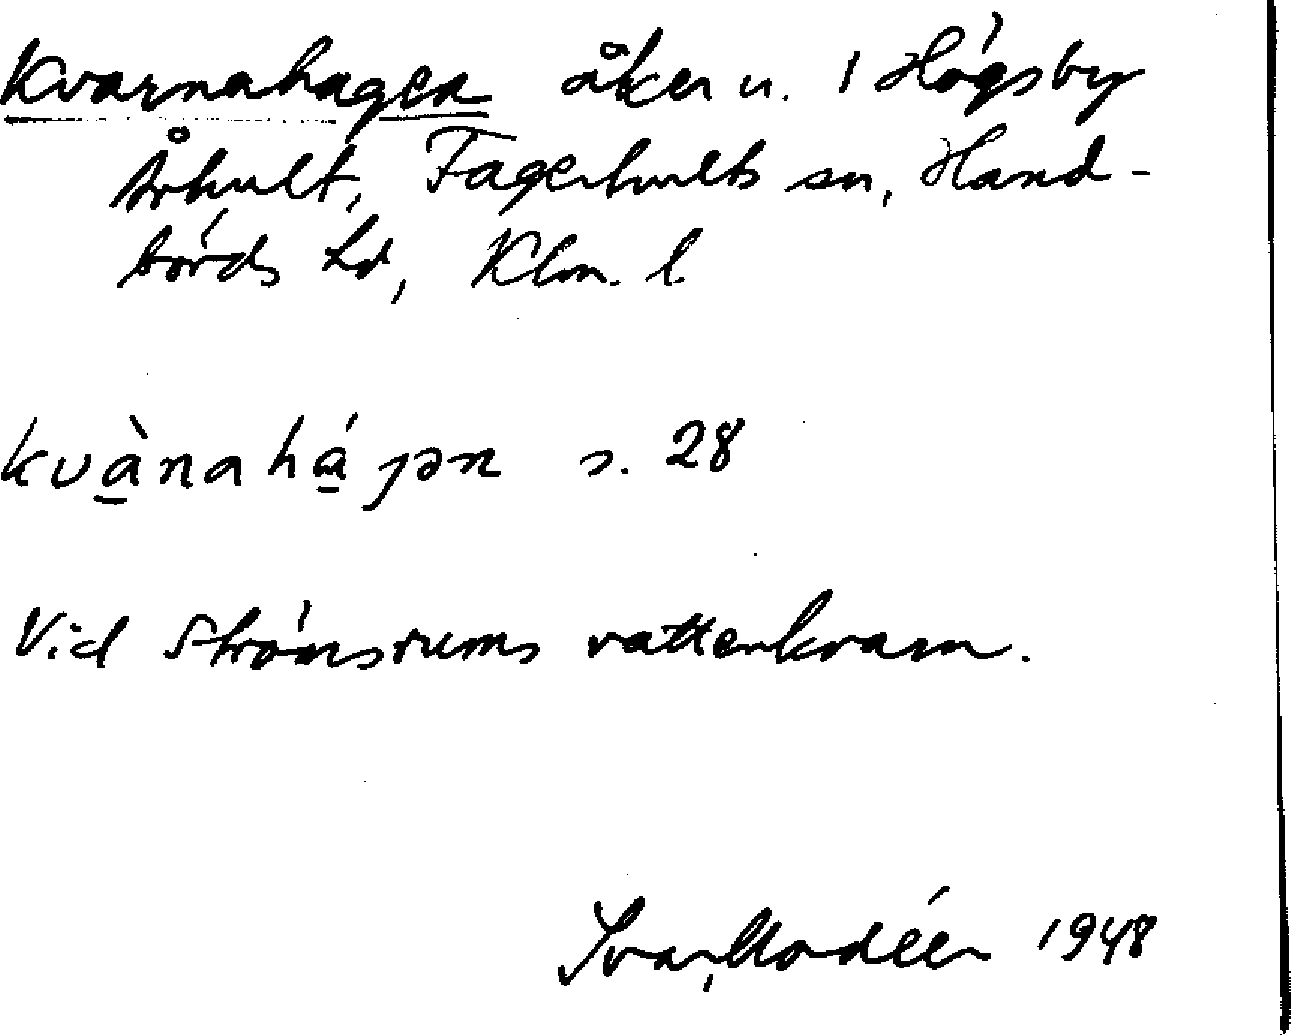 Kvarnahagen åker u. 1 Högsby
Århult, Fagerhults sn, Hand-
börds hd, Klm. l.
kvànahájən s. 28
Vid Strömsrums vattenkvarn.
Ivar Modéer 1948